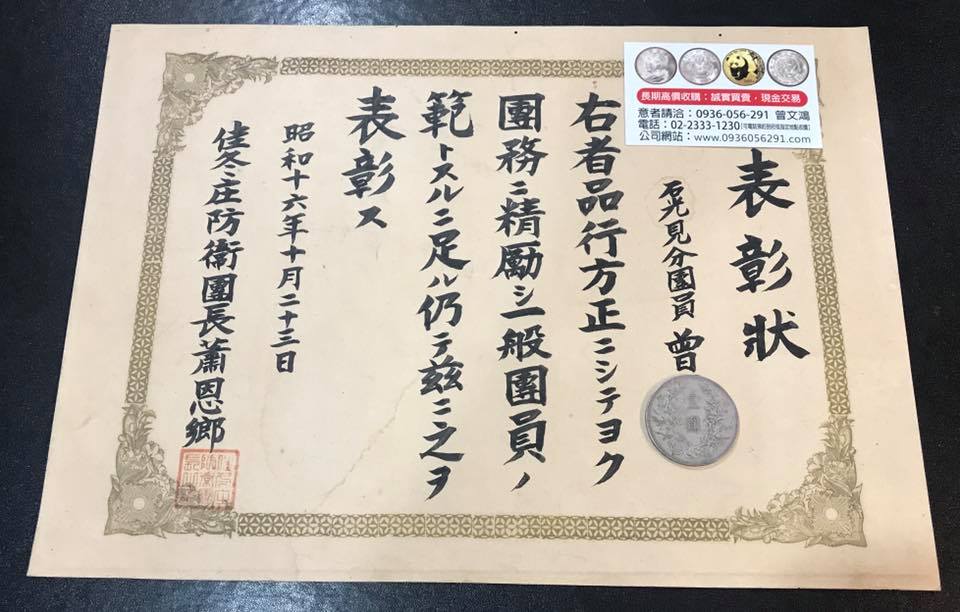 表彰状
石光見分團員 曾
右者品行方正ニシテヨク
團務ニ精勵シ一般團員ノ
範トスルニ足ル仍テ茲ニ之ヲ
表彰ス
昭和十六年十月二十三日
佳冬庄防衛團長蕭恩鄉
長期高價收購：誠實買賣，現金交易
意者請洽：0936-056-291 曾文鴻
電話：02-2333-1230
公司網站：www.0936056291.com
壹圓